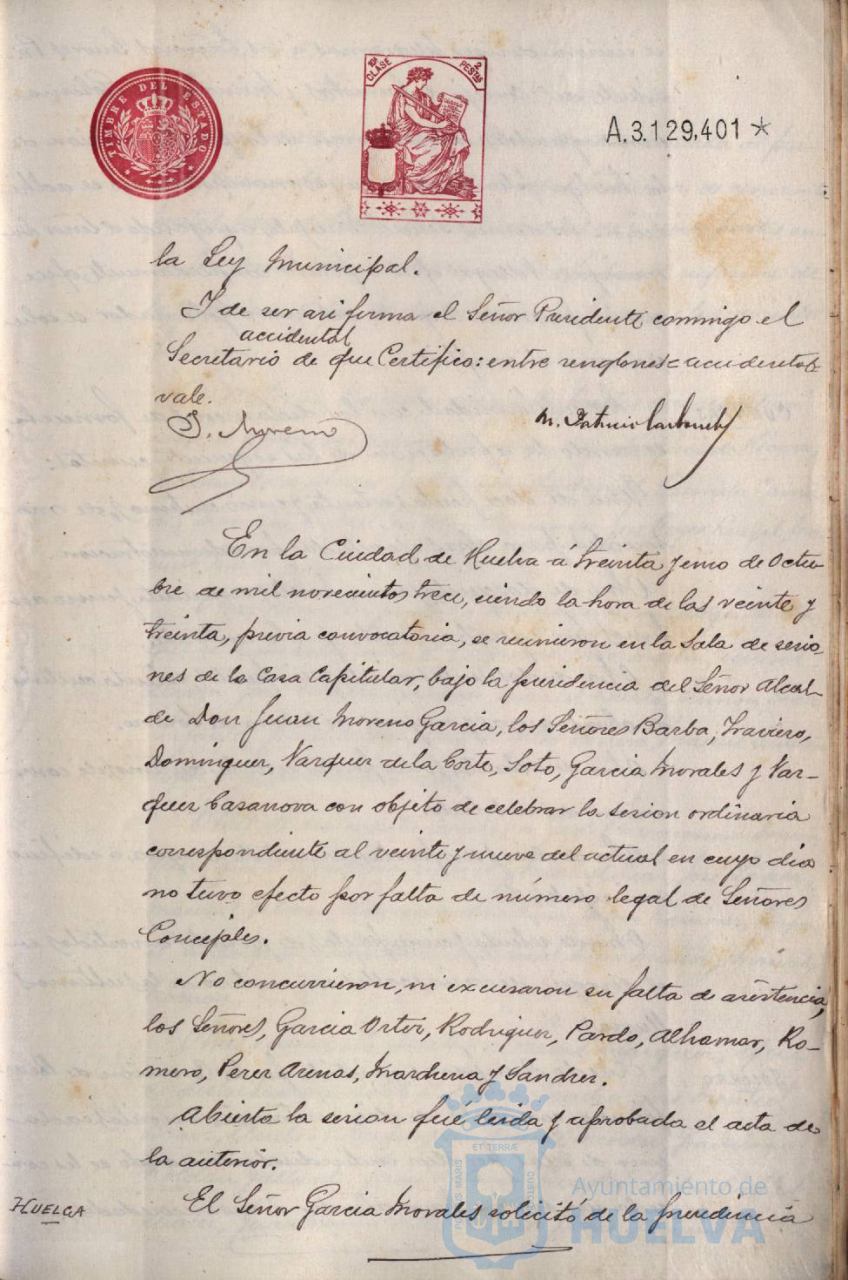 TIMBRE DEL ESTADO
10ª CLASE 2 PESTAS
A.3.129,401 *
la Ley Municipal.
Y de ser asi firma el Señor Presidente conmigo el
accidental
Secretario de que Certifico: entre renglones = accidental =
vale.
J. Moreno
M. Patricio
En la Ciudad de Huelva á treinta y uno de Octu-
bre de mil novecientos trece, siendo la hora de las veinte y
treinta, previa convocatoria, se reunieron en la Sala de sesio-
nes de la Casa Capitular, bajo la presidencia del Señor Alcal-
de Don Juan Moreno Garcia, los Señores Barba, Traviero,
Dominguez, Vazquez de la Corte, Soto, Garcia Morales y Vaz-
quez Casanova con objeto de celebrar la sesion ordinaria
correspondiente al veinte y nueve del actual en cuyo dia
no tuvo efecto por falta de número legal de Señores
Concejales.
No concurrieron, ni excusaron su falta de asistencia,
los Señores, Garcia Ortiz, Rodriguez, Pardo, Alhamar, Ro-
mero, Perez Arenas, Marchena y Sandrez.
Abierta la sesion fué leida y aprobada el acta de
la anterior.
HUELGA
El Señor Garcia Morales solicitó de la presidencia
Ayuntamiento de
HUELVA